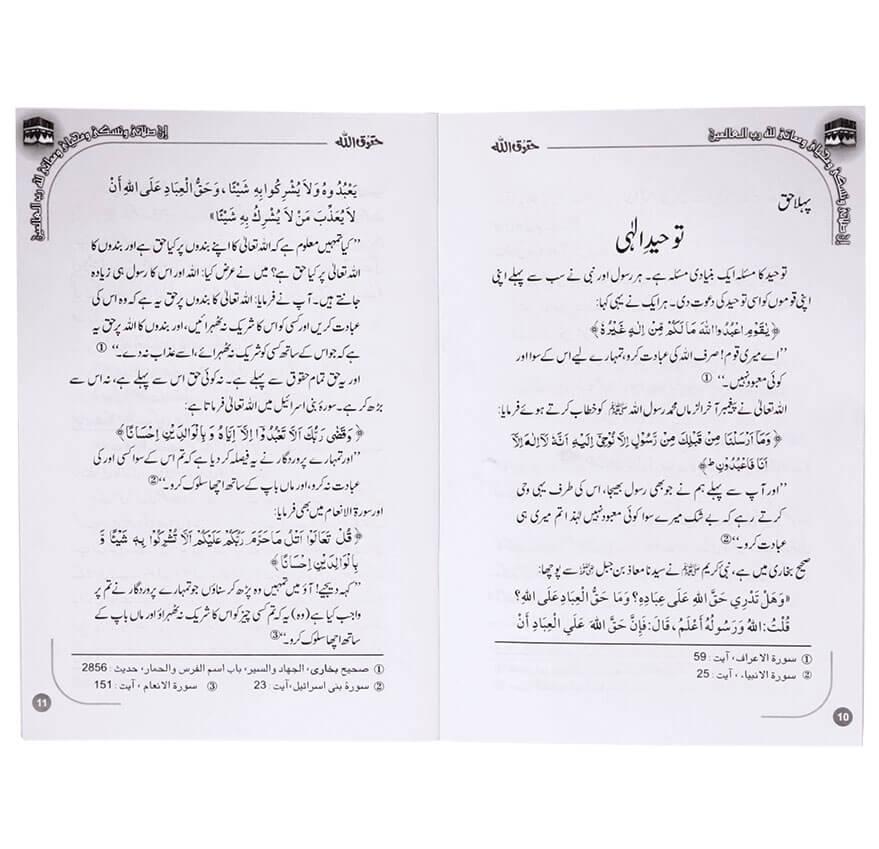 حقوق اللہ
إن صلاتي ونسكي ومحياي ومماتي لله رب العالمين
پہلا حق
توحیدِ الٰہی
توحید کا مسئلہ ایک بنیادی مسئلہ ہے۔ ہر رسول اور نبی نے سب سے پہلے اپنی
اپنی قوموں کو اسی توحید کی دعوت دی۔ ہر ایک نے یہی کہا:
﴿ يٰقَوْمِ اعْبُدُوا اللهَ مَا لَكُمْ مِّنْ اِلٰهٍ غَيْرُهٗ ﴾
’’اے میری قوم! صرف اللہ کی عبادت کرو، تمہارے لیے اس کے سوا اور
کوئی معبود نہیں۔‘‘ ①
اللہ تعالیٰ نے پیغمبر آخر الزماں محمد رسول اللہ ﷺ کو خطاب کرتے ہوئے فرمایا:
﴿ وَمَآ اَرْسَلْنَا مِنْ قَبْلِكَ مِنْ رَّسُوْلٍ اِلَّا نُوْحِيْٓ اِلَيْهِ اَنَّهٗ لَآ اِلٰهَ اِلَّآ
اَنَا فَاعْبُدُوْنِ ﴾
’’اور آپ سے پہلے ہم نے جو بھی رسول بھیجا، اس کی طرف یہی وحی
کرتے رہے کہ بے شک میرے سوا کوئی معبود نہیں لہٰذا تم میری ہی
عبادت کرو۔‘‘ ②
صحیح بخاری میں ہے، نبی کریم ﷺ نے سیدنا معاذ بن جبل رضی اللہ عنہ سے پوچھا:
«وَهَلْ تَدْرِي حَقَّ اللهِ عَلَى عِبَادِهِ؟ وَمَا حَقُّ الْعِبَادِ عَلَى اللهِ؟
قُلْتُ: اَللهُ وَرَسُولُهُ أَعْلَمُ، قَالَ: فَإِنَّ حَقَّ اللهِ عَلَي الْعِبَادِ أَنْ
① سورة الاعراف، آیت: 59
② سورة الانبیاء، آیت: 25
10
حقوق اللہ
إن صلاتي ونسكي ومحياي ومماتي لله رب العالمين
يَعْبُدُوهُ وَلاَ يُشْرِكُوا بِهِ شَيْئًا، وَحَقُّ الْعِبَادِ عَلَى اللهِ أَنْ
لاَ يُعَذِّبَ مَنْ لاَ يُشْرِكُ بِهِ شَيْئًا»
’’کیا تمہیں معلوم ہے کہ اللہ تعالیٰ کا اپنے بندوں پر کیا حق ہے اور بندوں کا
اللہ تعالیٰ پر کیا حق ہے؟ میں نے عرض کیا: اللہ اور اس کا رسول ہی زیادہ
جانتے ہیں۔ آپ نے فرمایا: اللہ تعالیٰ کا بندوں پر حق یہ ہے کہ وہ اس کی
عبادت کریں اور کسی کو اس کا شریک نہ ٹھہرائیں، اور بندوں کا اللہ پر حق یہ
ہے کہ جو اس کے ساتھ کسی کو شریک نہ ٹھہرائے، اسے عذاب نہ دے۔‘‘ ①
اور یہ حق تمام حقوق سے پہلے ہے۔ نہ کوئی حق اس سے پہلے ہے، نہ اس سے
بڑھ کر ہے۔ سورۂ بنی اسرائیل میں اللہ تعالیٰ فرماتا ہے:
﴿ وَقَضٰى رَبُّكَ اَلَّا تَعْبُدُوْٓا اِلَّآ اِيَّاهُ وَ بِالْوَالِدَيْنِ اِحْسَانًا ﴾
’’اور تمہارے پروردگار نے یہ فیصلہ کر دیا ہے کہ تم اس کے سوا کسی اور کی
عبادت نہ کرو، اور ماں باپ کے ساتھ اچھا سلوک کرو۔‘‘ ②
اور سورۃ الانعام میں بھی فرمایا:
﴿ قُلْ تَعَالَوْا اَتْلُ مَا حَرَّمَ رَبُّكُمْ عَلَيْكُمْ اَلَّا تُشْرِكُوْا بِهٖ شَيْئًا وَّ
بِالْوَالِدَيْنِ اِحْسَانًا ﴾
’’کہہ دیجیے! آؤ میں تمہیں وہ پڑھ کر سناؤں جو تمہارے پروردگار نے تم پر
واجب کیا ہے (وہ) یہ کہ تم کسی چیز کو اس کا شریک نہ ٹھہراؤ اور ماں باپ کے
ساتھ اچھا سلوک کرو۔‘‘ ③
① صحیح بخاری، الجهاد والسیر، باب اسم الفرس والحمار، حدیث: 2856
② سورۂ بنی اسرائیل، آیت: 23 ③ سورة الانعام، آیت: 151
11